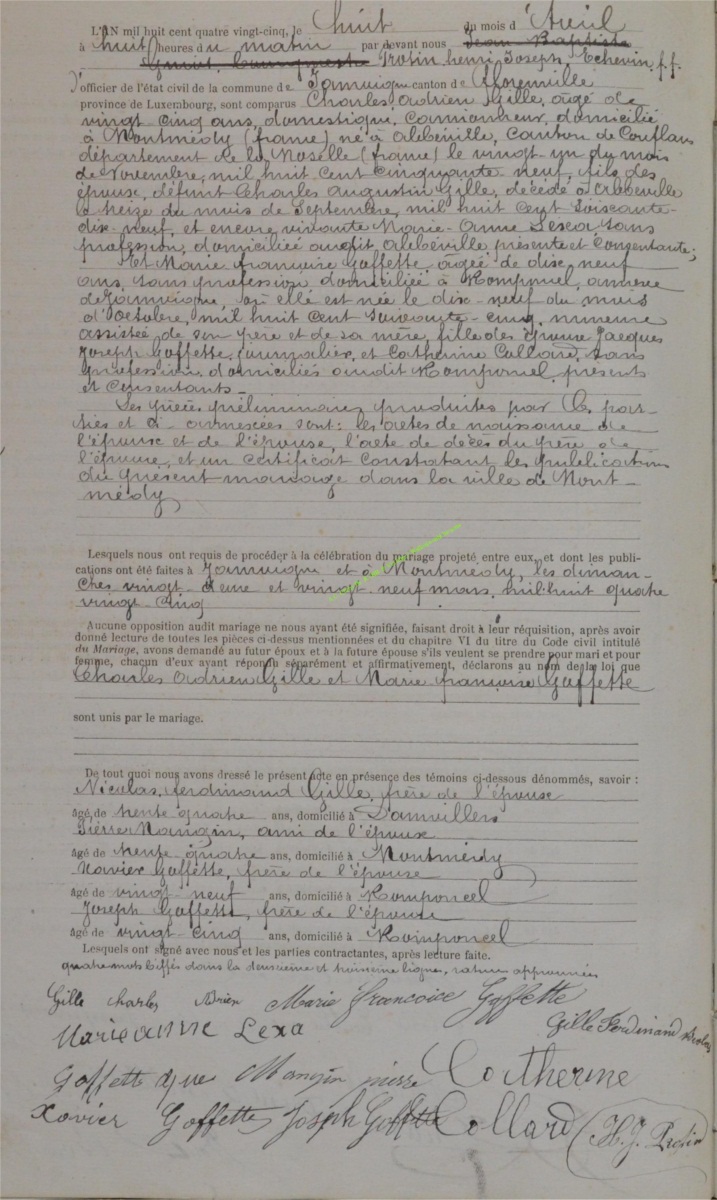 L'AN mil huit cent quatre vingt-cinq, le huit du mois d'Avril
à huit heures du matin par devant nous Jean Baptiste
Protin henri Joseph, Echevin, f.f.
d'officier de l'état civil de la commune de Jamoigne canton de Florenville
province de Luxembourg, sont comparus Charles Adrien Gille, âgé de
vingt cinq ans, domestique, camionneur, domicilié
à Montmédy (france) né à Abbéville, Canton de Conflans
département de la Moselle (france) le vingt-un du mois
de Novembre, mil huit Cent Cinquante neuf, fils des
époux, défunt Charles Augustin Gille, décédé à Abbeville
le treize du mois de Septembre, mil huit Cent Soixante-
dix-neuf, et encore vivante Marie-Anne Lexa sans
profession, domiciliée audit Abbéville présente et Consentante;
Et Marie françoise Goffette âgée de dix-neuf
ans, sans profession domiciliée à Romponcel, annexe
de Jamoigne, où elle est née le dix-neuf du mois
d'Octobre, mil huit Cent Soixante-cinq, mineure
assistée de son père et de sa mère, fille des époux Jacques
Joseph Goffette, journalier, et Catherine Collard, sans
profession, domiciliés audit Romponcel, présents
et Consentants_
Les pièces préliminaires produites par les par-
ties et ci-annexées sont: les actes de naissance de
l'époux et de l'épouse, l'acte de décès du père de
l'époux, et un certificat constatant les publications
du présent mariage dans la ville de Mont-
médy
Lesquels nous ont requis de procéder à la célébration du mariage projeté entre eux, et dont les publi-
cations ont été faites à Jamoigne et à Montmédy, les diman-
ches vingt-deux et vingt-neuf mars, mil huit quatre
vingt-cinq
Aucune opposition audit mariage ne nous ayant été signifiée, faisant droit à leur réquisition, après avoir
donné lecture de toutes les pièces ci-dessus mentionnées et du chapitre VI du titre du Code civil intitulé
du Mariage, avons demandé au futur époux et à la future épouse s'ils veulent se prendre pour mari et pour
femme, chacun d'eux ayant répondu séparément et affirmativement, déclarons au nom de la loi que
Charles Adrien Gille et Marie françoise Goffette
sont unis par le mariage.
De tout quoi nous avons dressé le présent acte en présence des témoins ci-dessous dénommés, savoir :
Nicolas, ferdinand Gille, frère de l'époux
âgé de trente quatre ans, domicilié à Damvillers
Pierre Mangin, ami de l'époux
âgé de trente-quatre ans, domicilié à Montmédy
Xavier Goffette, frère de l'épouse
âgé de vingt-neuf ans, domicilié à Romponcel
Joseph Goffette, frère de l'épouse
âgé de vingt-cinq ans, domicilié à Romponcel
Lesquels ont signé avec nous et les parties contractantes, après lecture faite.
quatre mots biffés dans la deuxième et troisième ligne, rature approuvée
Gille Charles Adrien Marie Francoise Goffette
Marie anne Lexa Gille Ferdinand Nicolas
Goffette Mangin pierre Catherine
Xavier Goffette Joseph Goffette Collard H. J. Protin